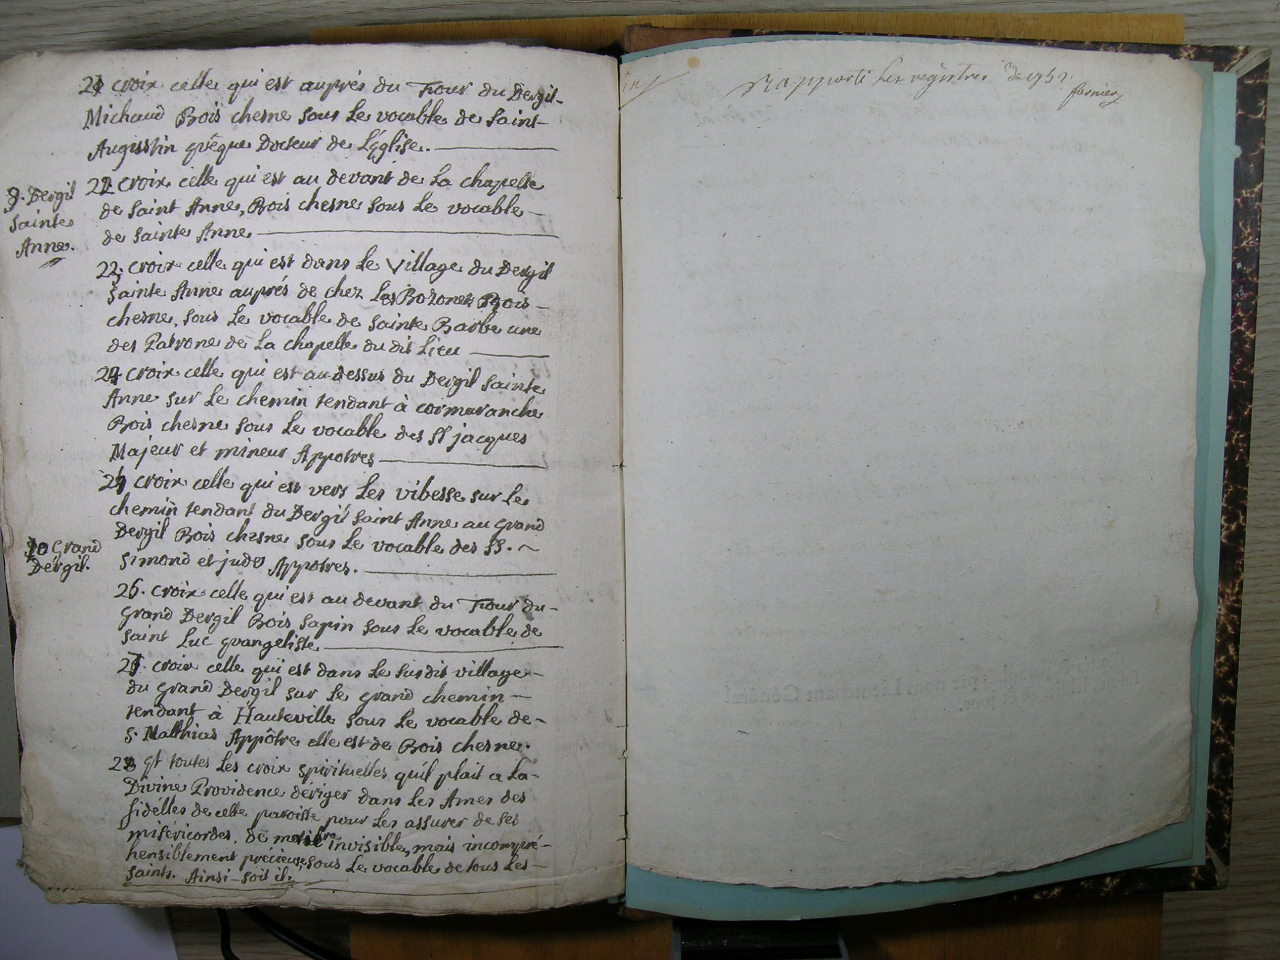 21 croix celle qui est auprés du Four du Dergil-
Michaud Bois chesne sous Le vocable de Saint-
Augustin Evêque Docteur de L'Eglise.
9. Dergil
Sainte
Anne.
22 croix celle qui est au devant de La chapelle
de Saint Anne, Bois chesne sous Le vocable
de Sainte Anne
23. croix celle qui est dans Le Village du Dergil
Sainte Anne auprés de chez Les Bozonet Bois
chesne, sous Le vocable de Sainte Barbe une
des Patrone de La chapelle du dit Lieu
24 croix celle qui est au dessus du Dergil Sainte
Anne sur Le chemin tendant à cormaranche
Bois chesne sous Le vocable des SS jacques
Majeur et mineur Appotres
25 croix celle qui est vers Les vibesse sur Le
chemin tendant du Dergil Saint Anne au grand
Dergil Bois chesne sous Le vocable des SS.
Simond et judes Appotres.
10 Grand
Dérgil.
26. croix celle qui est au devant du Four du-
Grand Dergil Bois Sapin sous Le vocable de
Saint Luc Evangeliste
27. croix celle qui est dans Le susdit village
du Grand Dergil sur Le grand chemin
tendant à Hauteville sous Le vocable de-
S. Matthias Appôtre elle est de Bois chesne.
28 Et toutes Les croix spirituelles qu'il plait a La-
Divine Providence dériger dans Les Ames des
fidelles de cette paroisse pour Les assurer de ses
miséricordes. de matière invisible, mais incompré-
hensiblement précieuse, sous Le vocable de tous Les
Saints. Ainsi-soit il.
Rapporté Les registres de 1752.
fornier